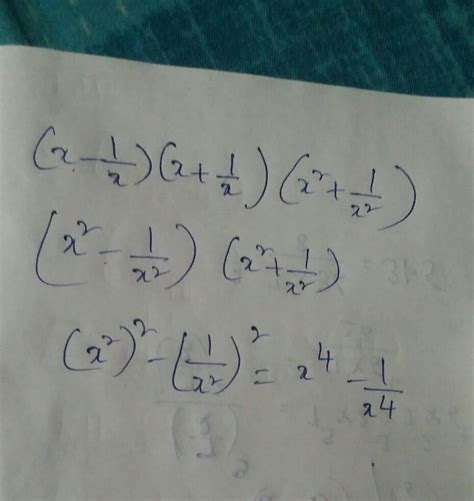 (x - 1/x)(x + 1/x)(x² + 1/x²)
(x² - 1/x²) (x² + 1/x²)
(x²)² - (1/x²)² = x⁴ - 1/x⁴